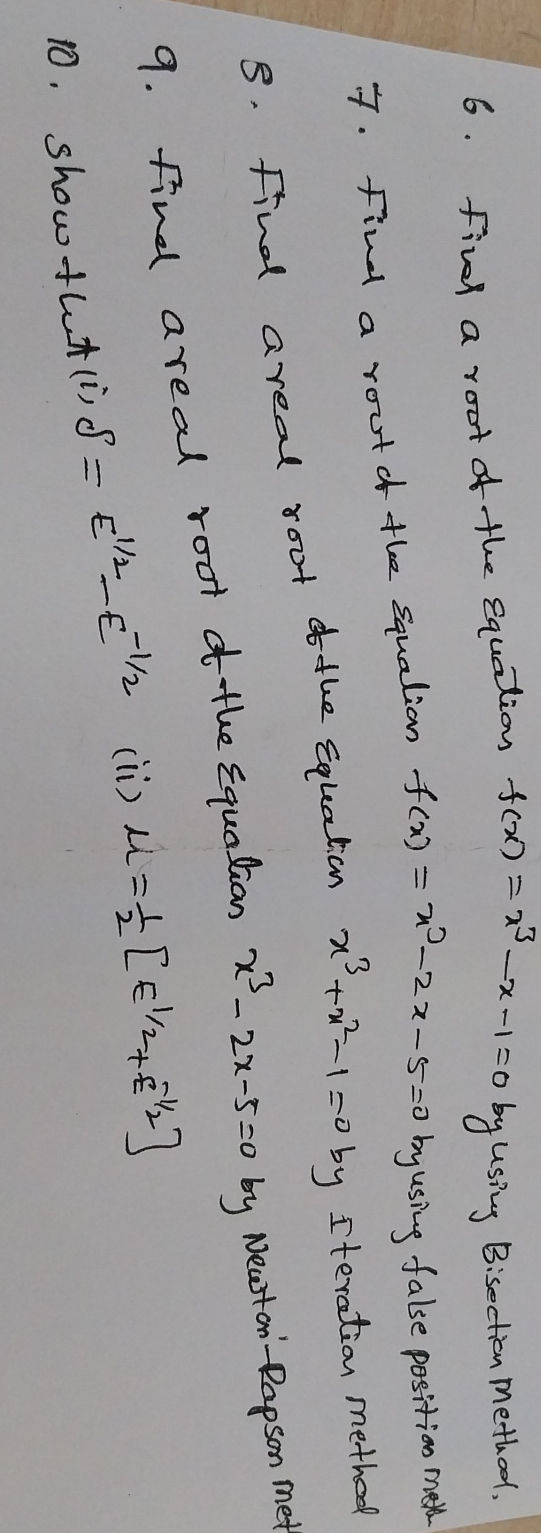 6. Find a root of the Equation f(x) = x³ - x - 1 = 0 by using Bisection Method.
7. Find a root of the Equation f(x) = x³ - 2x - 5 = 0 by using false position meth
8. Find a real root of the Equation x³ + x² - 1 = 0 by Iteration method
9. Find a real root of the Equation x³ - 2x - 5 = 0 by Newton-Rapson met
10. Show that (i) δ = E^{1/2} - E^{-1/2} (ii) μ = 1/2 [E^{1/2} + E^{-1/2}]